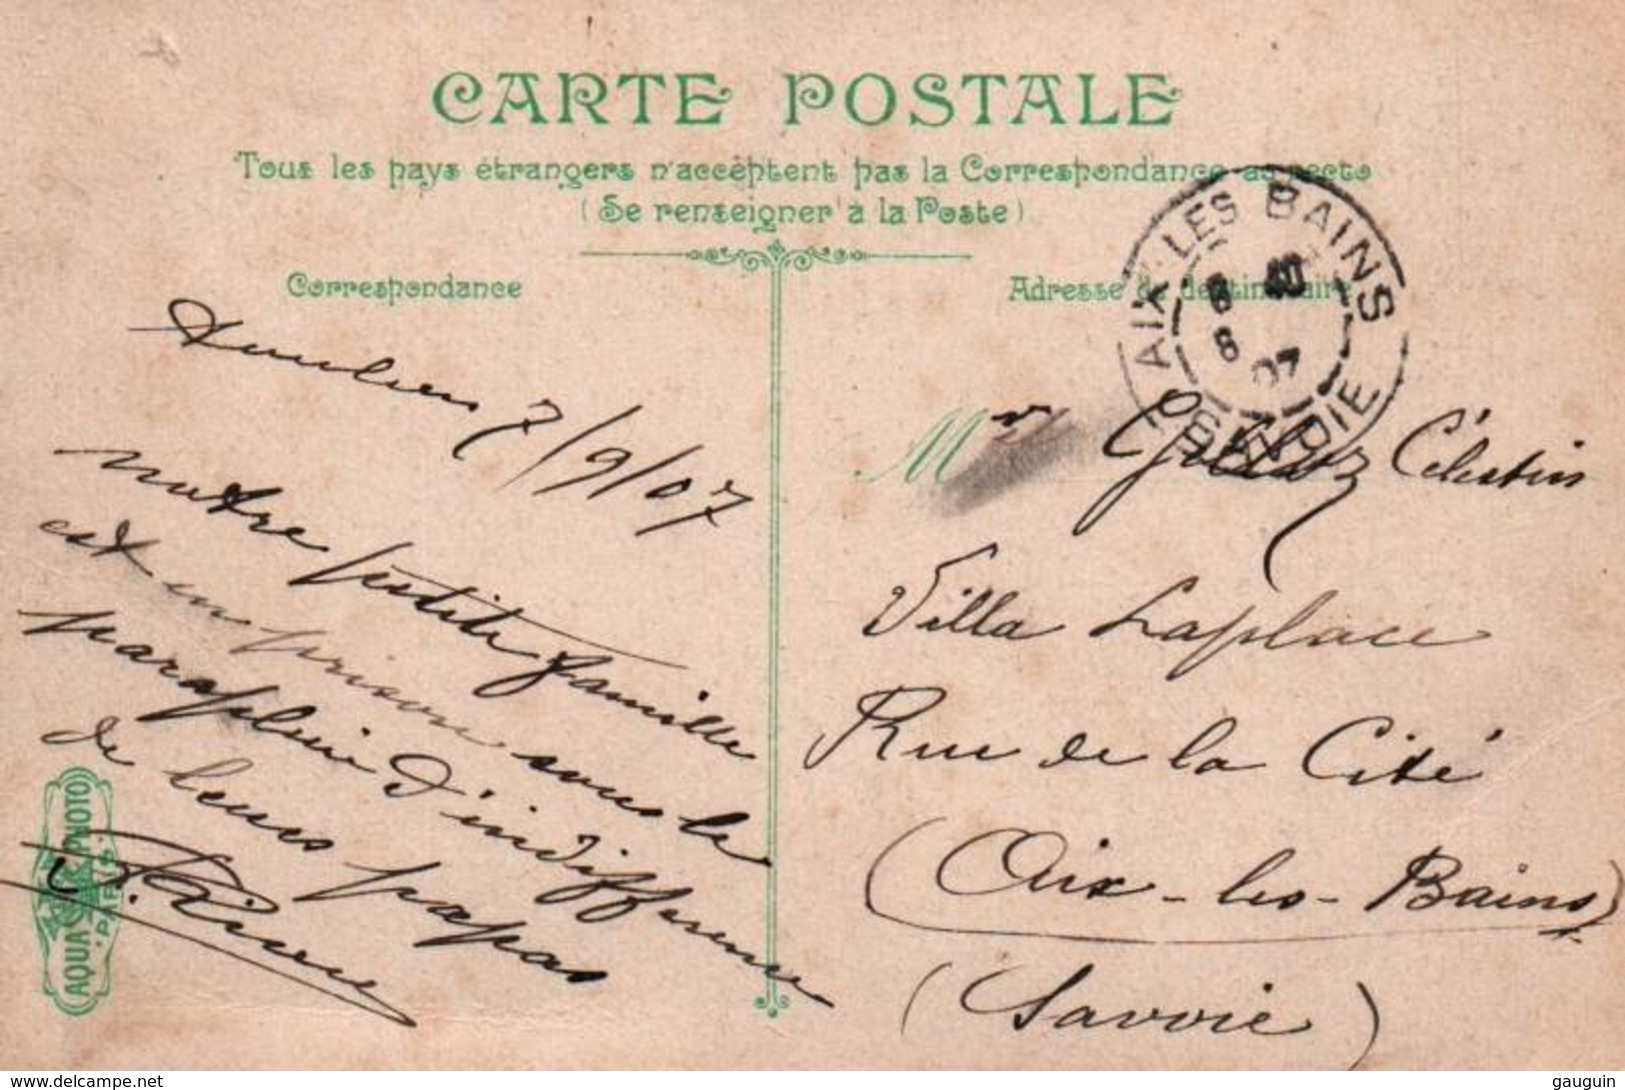 CARTE POSTALE
Tous les pays étrangers n'accèptent pas la Correspondance au recto
(Se renseigner à la Poste)
Correspondance
Adresse du destinataire
AIX-LES-BAINS
8
07
SAVOIE
7/9/07
notre petite famille
est en prison sous le
parapluie d'indifférence
de leurs papas
Mr Célestin
Villa Laplace
Rue de la Cité
(Aix-les-Bains)
(Savoie)
AQUA PHOTO
PARIS
delcampe.net
gauguin